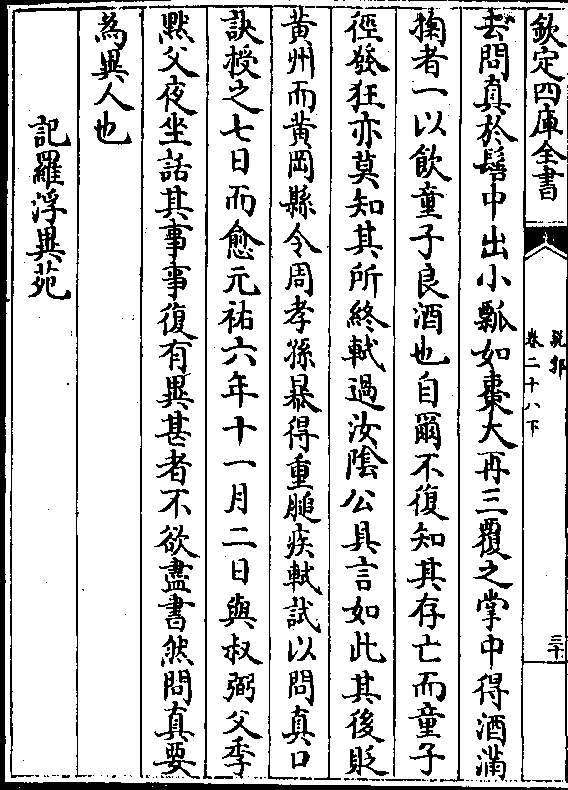 欽定四庫全書
說郛
卷二十八下
三十
去問真於髻中出小瓢如棗大再三覆之掌中得酒滿
掬者一以飲童子良酒也自爾不復知其存亡而童子
徑發狂亦莫知其所終軾過汝陰公具言如此其後貶
黃州而黃岡縣令周孝孫暴得重膇疾軾試以問真口
訣授之七日而愈元祐六年十一月二日與叔弼父季
黙父夜坐話其事事復有異甚者不欲盡書然問真要
為異人也
記羅浮異苑